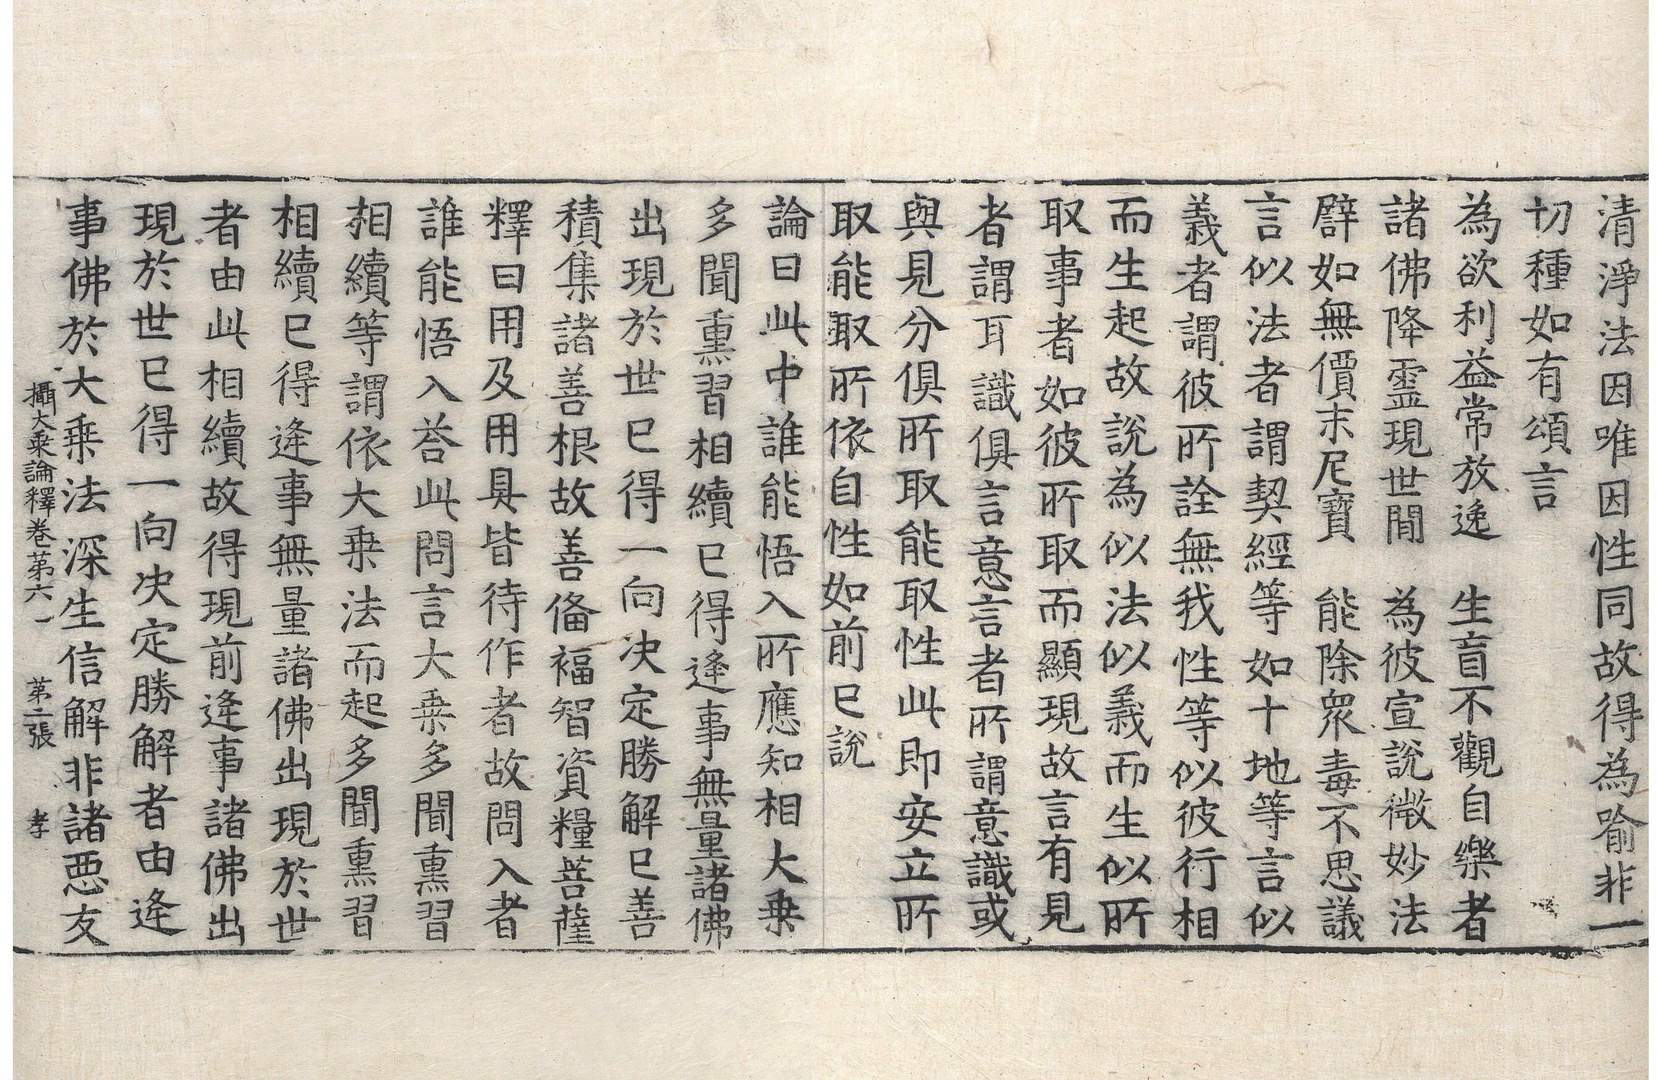 清淨法因唯因性同故得為喻非一
切種如有頌言
為欲利益常放逸　生盲不觀自樂者
諸佛降靈現世間　為彼宣說微妙法
譬如無價末尼寶　能除衆毒不思議
言似法者謂契經等如十地等言似
義者謂彼所詮無我性等似彼行相
而生起故說為似法似義而生似所
取事者如彼所取而顯現故言有見
者謂耳識俱言意言者所謂意識或
與見分俱所取能取性此即安立所
取能取所依自性如前已說
論曰此中誰能悟入所應知相大乗
多聞熏習相續已得逄事無量諸佛
出現於世已得一向决定勝解已善
積集諸善根故善俻福智資糧菩薩
釋曰用及用具皆待作者故問入者
誰能悟入荅此問言大乗多聞熏習
相續等謂依大乗法而起多聞熏習
相續已得逄事無量諸佛出現於世
者由此相續故得現前逄事諸佛出
現於世已得一向决定勝解者由逄
事佛於大乗法深生信解非諸悪友
攝大乗論釋卷第六　第二張　孝